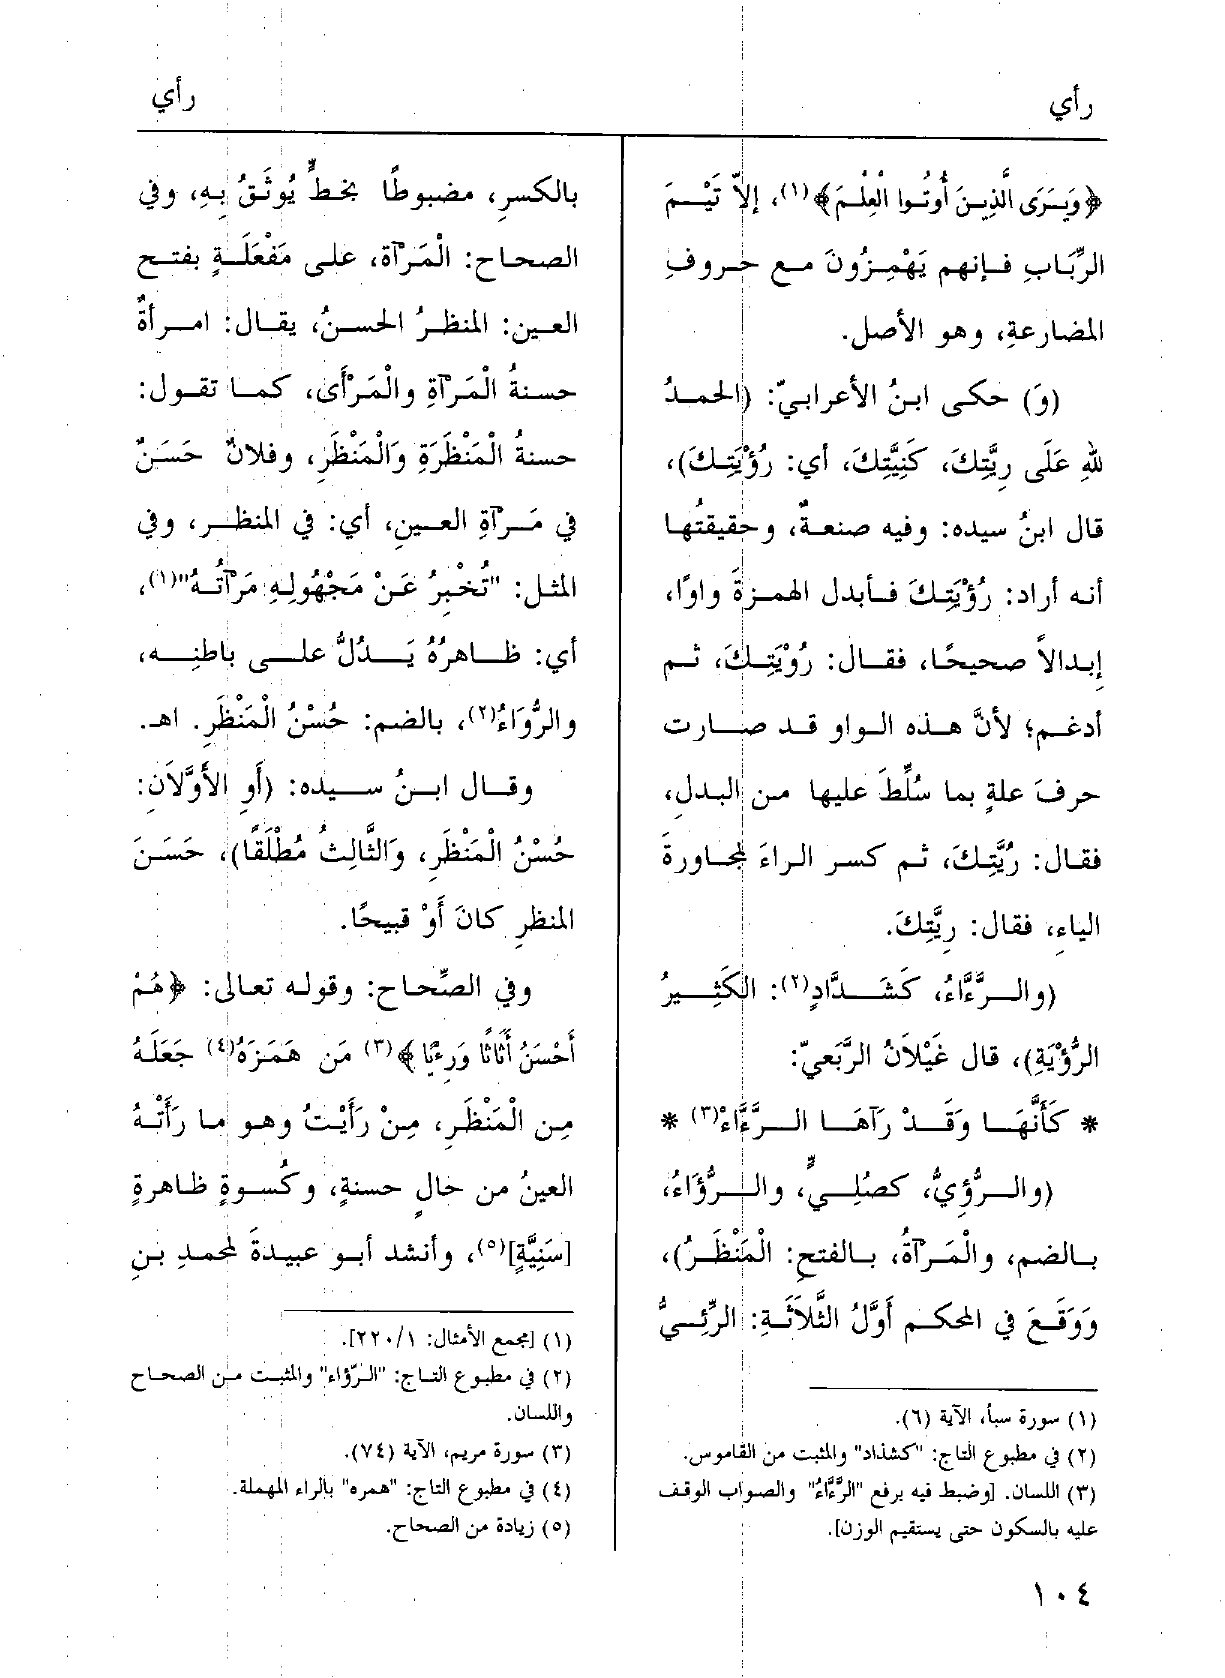 رأي
رأي
﴿وَيَرَى الَّذِينَ أُوتُوا الْعِلْمَ﴾(١)، إلاّ تَيْمَ
الرِّبَابِ فإنهم يَهْمِزُونَ مع حروفِ
المضارعةِ، وهو الأصل.
(وَ) حكى ابنُ الأعرابيّ: (الحمدُ
للهِ عَلَى رِيَّتِكَ، كَنِيَّتِكَ، أي: رُؤْيَتِكَ)،
قال ابنُ سيده: وفيه صنعةٌ، وحقيقتُها
أنه أراد: رُؤْيَتِكَ فأبدل الهمزةَ واوًا،
إبدالاً صحيحًا، فقال: رُوْيَتِكَ، ثم
أدغم؛ لأنَّ هذه الواو قد صارت
حرفَ علةٍ بما سُلِّطَ عليها من البدلِ،
فقال: رُيَّتِكَ، ثم كسر الراءَ لمجاورةَ
الياءِ، فقال: رِيَّتِكَ.
(والرَّءَّاءُ، كَشَدَّادٍ(٢): الكَثِيرُ
الرُّؤْيَةِ)، قال غَيْلَانُ الرَّبَعيّ:
* كَأَنَّهَا وَقَدْ رَآهَا الرَّءَّاءْ(٣) *
(والرُّؤِيُّ، كصُلِيٍّ، والرُّؤَاءُ،
بالضم، والْمَرْآةُ، بالفتحِ: الْمَنْظَرُ)،
وَوَقَعَ في المحكم أَوَّلُ الثَّلَاثَةِ: الرِّئِيُّ
(١) سورة سبأ، الآية (٦).
(٢) في مطبوع التاج: "كشذاد" والمثبت من القاموس.
(٣) اللسان. [وضبط فيه برفع "الرَّءَّاءُ" والصواب الوقف
عليه بالسكون حتى يستقيم الوزن].
بالكسرِ، مضبوطًا بخطٍّ يُوثَقُ بِهِ، وفي
الصحاح: الْمَرْآة، على مَفْعَلَةٍ بفتح
العين: المنظرُ الحسنُ، يقال: امرأةٌ
حسنةُ الْمَرْآةِ والْمَرْأَى، كما تقول:
حسنةُ الْمَنْظَرَةِ وَالْمَنْظَرِ، وفلانٌ حَسَنٌ
في مَرْآةِ العينِ، أي: في المنظرِ، وفي
المثل: "تُخْبِرُ عَنْ مَجْهُولِهِ مَرْآتُهُ"(١)،
أي: ظاهرُهُ يَدُلُّ على باطنِه،
والرُّوَاءُ(٢)، بالضم: حُسْنُ الْمَنْظَرِ. اهـ.
وقال ابنُ سيده: (أَوِ الأَوَّلَانِ:
حُسْنُ الْمَنْظَرِ، وَالثَّالِثُ مُطْلَقًا)، حَسَنَ
المنظرِ كانَ أَوْ قبيحًا.
وفي الصِّحاح: وقوله تعالى: ﴿هُمْ
أَحْسَنُ أَثَاثًا وَرِءْيًا﴾(٣) مَن هَمَزَهُ(٤) جَعَلَهُ
مِن الْمَنْظَرِ، مِنْ رَأَيْتُ وهو ما رَأَتْهُ
العينُ من حالٍ حسنةٍ، وكُسوةٍ ظاهرةٍ
[سَنِيَّةٍ](٥)، وأنشد أبو عبيدةَ لمحمدِ بنِ
(١) [مجمع الأمثال: ٢٢٠/١].
(٢) في مطبوع التاج: "الرّؤاء" والمثبت من الصحاح
واللسان.
(٣) سورة مريم، الآية (٧٤).
(٤) في مطبوع التاج: "همره" بالراء المهملة.
(٥) زيادة من الصحاح.
١٠٤